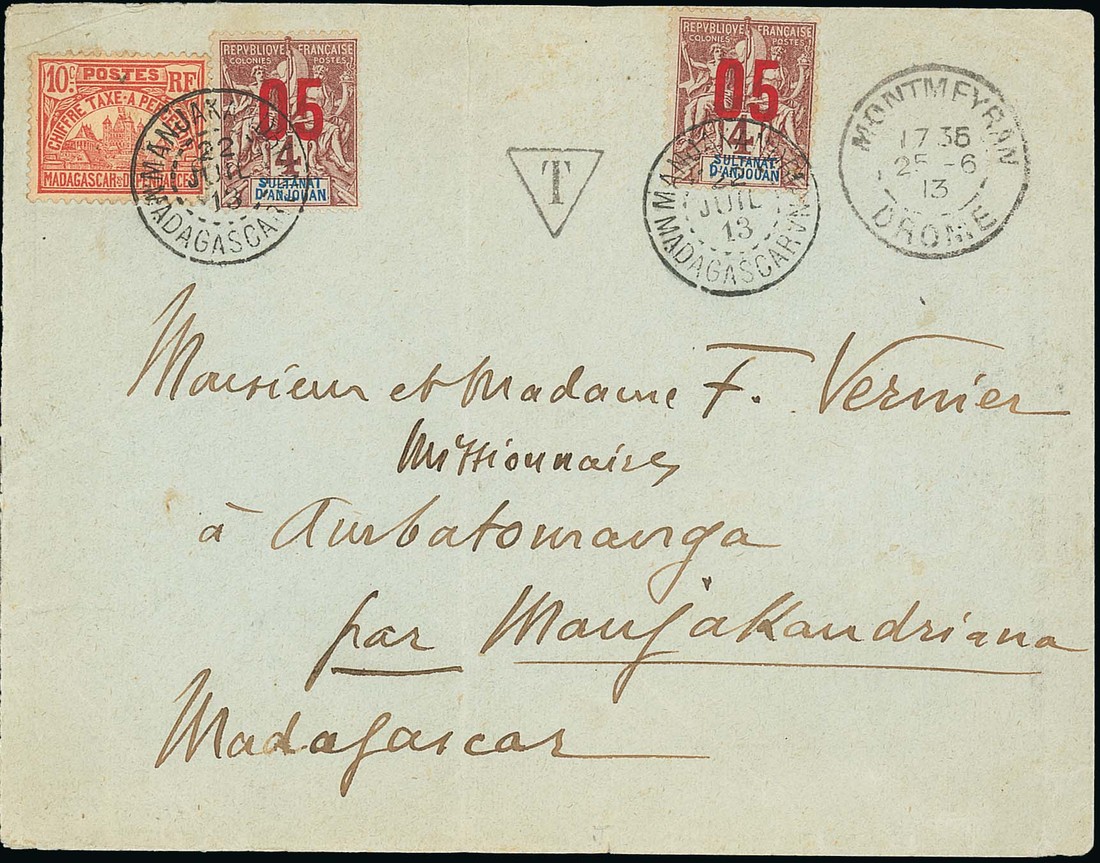 10c. POSTES RF
CHIFFRE TAXE A
MADAGASCAR
REPVBLIQVE FRANÇAISE
COLONIES POSTES
05
4
SULTANAT
D'ANJOUAN
22
JUIL
13
MADAGASCAR
T
REPVBLIQVE FRANÇAISE
COLONIES POSTES
05
4
SULTANAT
D'ANJOUAN
22
JUIL
13
MADAGASCAR
MONTMEYRAN
17 35
25 - 6
13
DROME
Monsieur et Madame F. Vernier
Missionnaires
à Ambatomanga
par Manjakandriana
Madagascar